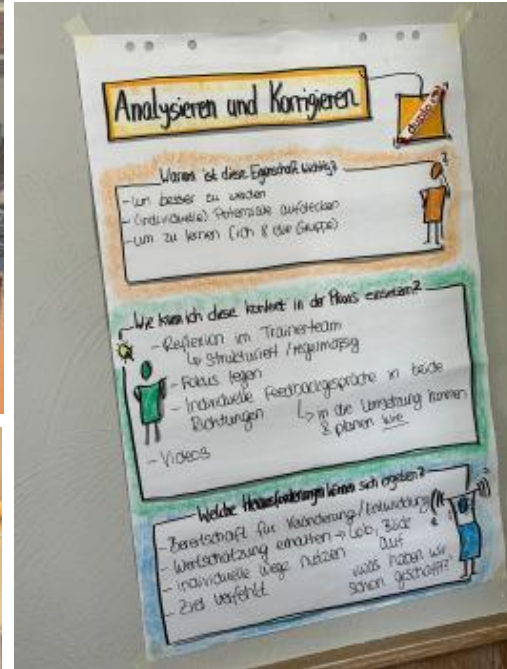 Analysieren und Korrigieren
duplo
Warum ist diese Eigenschaft wichtig?
- um besser zu werden
- (individuelle) Potenziale aufdecken
- um zu lernen (ich & die Gruppe)
Wie kann ich diese konkret in der Praxis einsetzen?
- Reflexion im Trainerteam
↳ strukturiert / regelmäßig
- Fokus legen
- Individuelle Feedbackgespräche in beide
Richtungen
↳ in die Umsetzung kommen
& planen wie
- Videos
Welche Herausforderungen können sich ergeben?
- Bereitschaft für Veränderung/Entwicklung
- Wertschätzung erhalten → Lob, Blick
auf
- individuelle Wege nutzen
"was haben wir
- Ziel verfehlt
schon geschafft?"